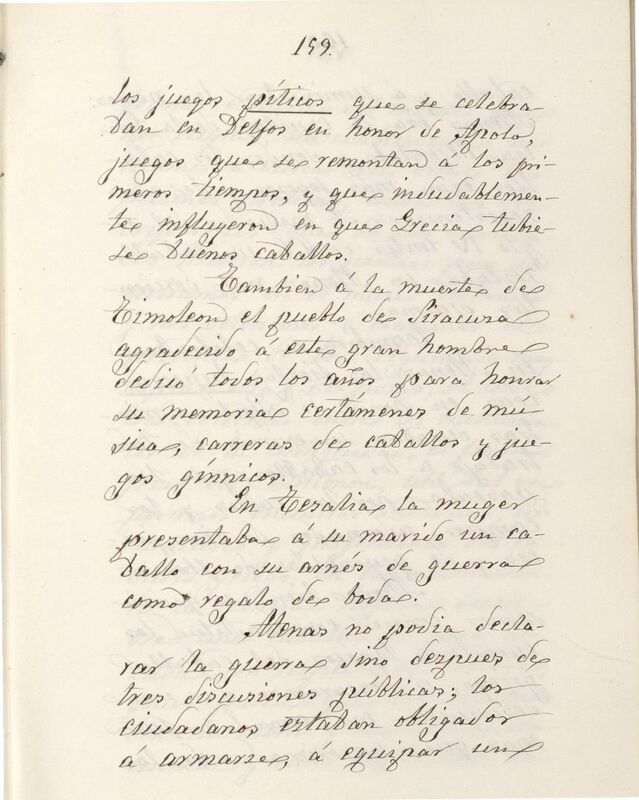 159.
los juegos píticos que se celebra-
ban en Delfos en honor de Apolo,
juegos que se remontan á los pri-
meros tiempos, y que indudablemen-
te influyeron en que Grecia tubie-
se buenos caballos.
Tambien á la muerte de
Timoleon el pueblo de Siracusa
agradecido á este gran hombre
dedicó todos los años para honrar
su memoria certámenes de mú-
sica, carreras de caballos y jue-
gos gínnicos.
En Tesalia la muger
presentaba á su marido un ca-
ballo con su arnés de guerra
como regalo de boda.
Atenas no podia decla-
rar la guerra sino despues de
tres discusiones públicas; los
ciudadanos estaban obligados
á armarse, á equipar un